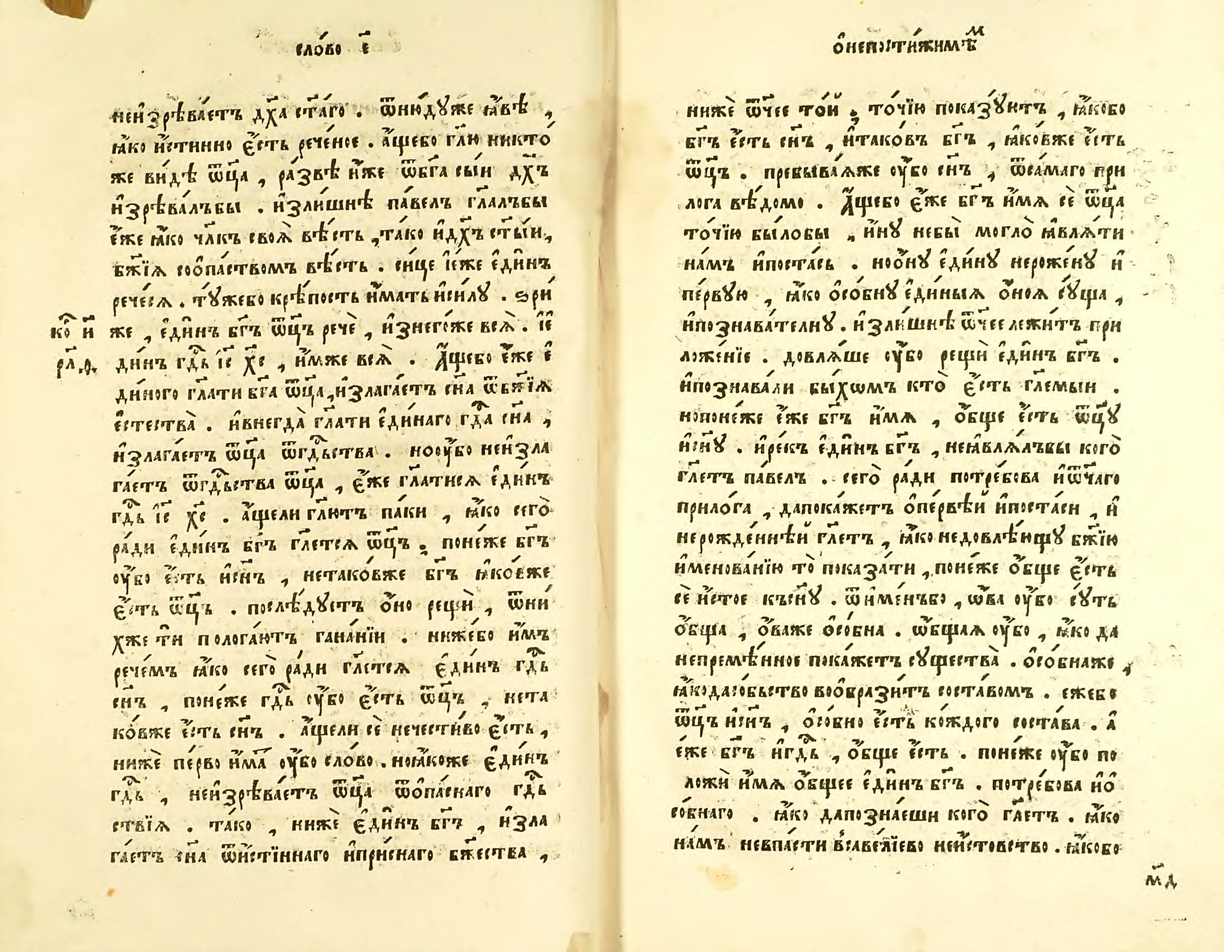 сло́во е҃
неизрѣва́етъ дх҃а ст҃а́го . ѿню́дꙋже ꙗ҆́вѣ ,
ꙗ҆́ко и҆́стинно є҆́сть рече́ное . а҆́щебо гл҃ю никто̀
же ви́дѣ ѿц҃а , ра́звѣ и҆́же ѿбг҃а сы́и дх҃ъ
и҆зрѣва́лъбы . и҆зли́шнѣ па́велъ гл҃алъбы
є҆́же ꙗ҆́ко чл҃къ своѧ̀ вѣ́сть , та́ко и҆дх҃ъ ст҃ы́и ,
бж҃їѧ соѻ҆па́ствомъ вѣ́сть . си́це і҆е҆́же є҆ди́нъ
рече́сѧ . тꙋ́жебо крѣ́пость и҆́мать и҆си́лꙋ . ѕри
же , є҆ди́нъ бг҃ъ ѿц҃ъ речѐ , и҆знего́же всѧ̀ . і҆є҆
ди́нъ гд҃ь і҆с҃ х҃с , и҆́мже всѧ̀ . А҆́щебо є҆́же є҆
ди́ного гл҃ати бг҃а ѿц҃а , и҆злага́етъ сн҃а ѿбж҃їѧ
є҆стества̀ . и҆внегда̀ гл҃ати є҆ди́наго гд҃а сн҃а ,
и҆злага́етъ ѿц҃а ѿгд҃ьства . ноѹ҆́бо неи҆зла
га́етъ ѿгд҃ьства ѿц҃а , є҆́же гл҃атисѧ є҆ди́нъ
гд҃ь і҆с҃ х҃с . а҆́щели гл҃ютъ па́ки , ꙗ҆́ко сего̀
ра́ди є҆ди́нъ бг҃ъ гл҃етсѧ ѿц҃ъ , поне́же бг҃ъ
ѹ҆́бо є҆́сть и҆сн҃ъ , нетако́вже бг҃ъ ꙗ҆ко́вже
є҆́сть ѿц҃ъ . послѣ́дꙋетъ ѻ҆но рещѝ , ѿни́
хже ти пологаю́тъ гана́нїи . ниже́бо и҆́мъ
рече́мъ ꙗ҆́ко сего̀ ра́ди гл҃етсѧ є҆ди́нъ гд҃ь
сн҃ъ , поне́же гд҃ь ѹ҆́бо є҆́сть ѿц҃ъ , нета
ко́вже є҆́сть сн҃ъ . а҆́щели сѐ нечести́во є҆́сть ,
нижѐ пе́рво и҆́ма ѹ҆́бо сло́во . ноꙗ҆́коже є҆ди́нъ
гд҃ь , неи҆зрѣва́етъ ѿц҃а ѿѻ҆па́снаго гд҃ь
ствїѧ . та́ко , нижѐ є҆ди́нъ бг҃ъ , и҆зла
га́етъ сн҃а ѿи҆́стїннаго и҆при́снаго бж҃ества ,
ко҃ и҃
рл҃ѳ.
ѻ҆непостижи́мѣм
нижѐ ѿчее то́и , то́чїю показꙋ́ютъ , ꙗ҆́кобо
бг҃ъ є҆́сть сн҃ъ , и҆тако́въ бг҃ъ , ꙗ҆ко́вже є҆́сть
ѿц҃ъ . пребыва́ѧже ѹ҆́бо сн҃ъ , ѿса́маго при
лога вѣ́домо . А҆́щебо є҆́же бг҃ъ и҆́мѧ сѐ ѿц҃а
то́чїю бы́лобы , и҆́нꙋ небы̀ могло̀ ꙗ҆влѧ́ти
на́мъ и҆поста́сь . ноѻ҆́нꙋ є҆ди́нꙋ нероже́нꙋ и҆
пе́рвꙋю , ꙗ҆́ко ѻ҆со́бнꙋ є҆ди́ныѧ ѻ҆ноѧ̀ сꙋ́ща ,
и҆познава́телнꙋ . и҆зли́шнѣ ѿчее лежи́тъ при
ложе́нїе . довлѧ́ше ѹ҆́бо рещѝ є҆ди́нъ бг҃ъ .
и҆познава́ли бы́хѡмъ кто̀ є҆́сть гл҃емыи .
нопоне́же є҆́же бг҃ъ и҆́мѧ , ѻ҆́бще є҆́сть ѿц҃ꙋ
и҆сн҃ꙋ . и҆рекъ є҆ди́нъ бг҃ъ , неꙗ҆влѧ́лъбы кого̀
гл҃етъ па́велъ . сего̀ ра́ди потре́бова и҆ѿчаго
прило́га , дапока́жетъ ѻ҆пе́рвѣи и҆поста́си , и҆
нерожде́ннѣи гл҃етъ , ꙗ҆́ко недовлѣ́ющꙋ бж҃їю
и҆менова́нїю то̀ показа́ти , поне́же ѻ҆́бще є҆́сть
сѐ и҆́стое къ сн҃ꙋ . ѿи҆ме́нъбо , ѻ҆́ва ѹ҆́бо сꙋ́ть
ѻ҆́бща , ѻ҆́важе ѻ҆со́бна . ѻ҆́бщаѧ ѹ҆́бо , ꙗ҆́ко да
непремѣ́нное пока́жетъ сꙋщества̀ . ѻ҆со́бнаже ,
ꙗ҆́кодасо́бьство воѻ҆брази́тъ соста́вомъ . е́жебо
ѿц҃ъ и҆сн҃ъ , ѻ҆со́бно є҆́сть ко́ждого соста́ва . а҆
є҆́же бг҃ъ и҆гд҃ь , ѻ҆́бще є҆́сть . поне́же ѹ҆́бо по
ложѝ и҆́мѧ ѻ҆́бщее є҆ди́нъ бг҃ъ . потре́бова и҆ѻ҆
со́бнаго . ꙗ҆́ко дапозна́еши кого̀ гл҃етъ . ꙗ҆́ко
на́мъ невпа́сти в̾саве́лїево неи҆́стовство . ꙗ҆́кобо
м҃д